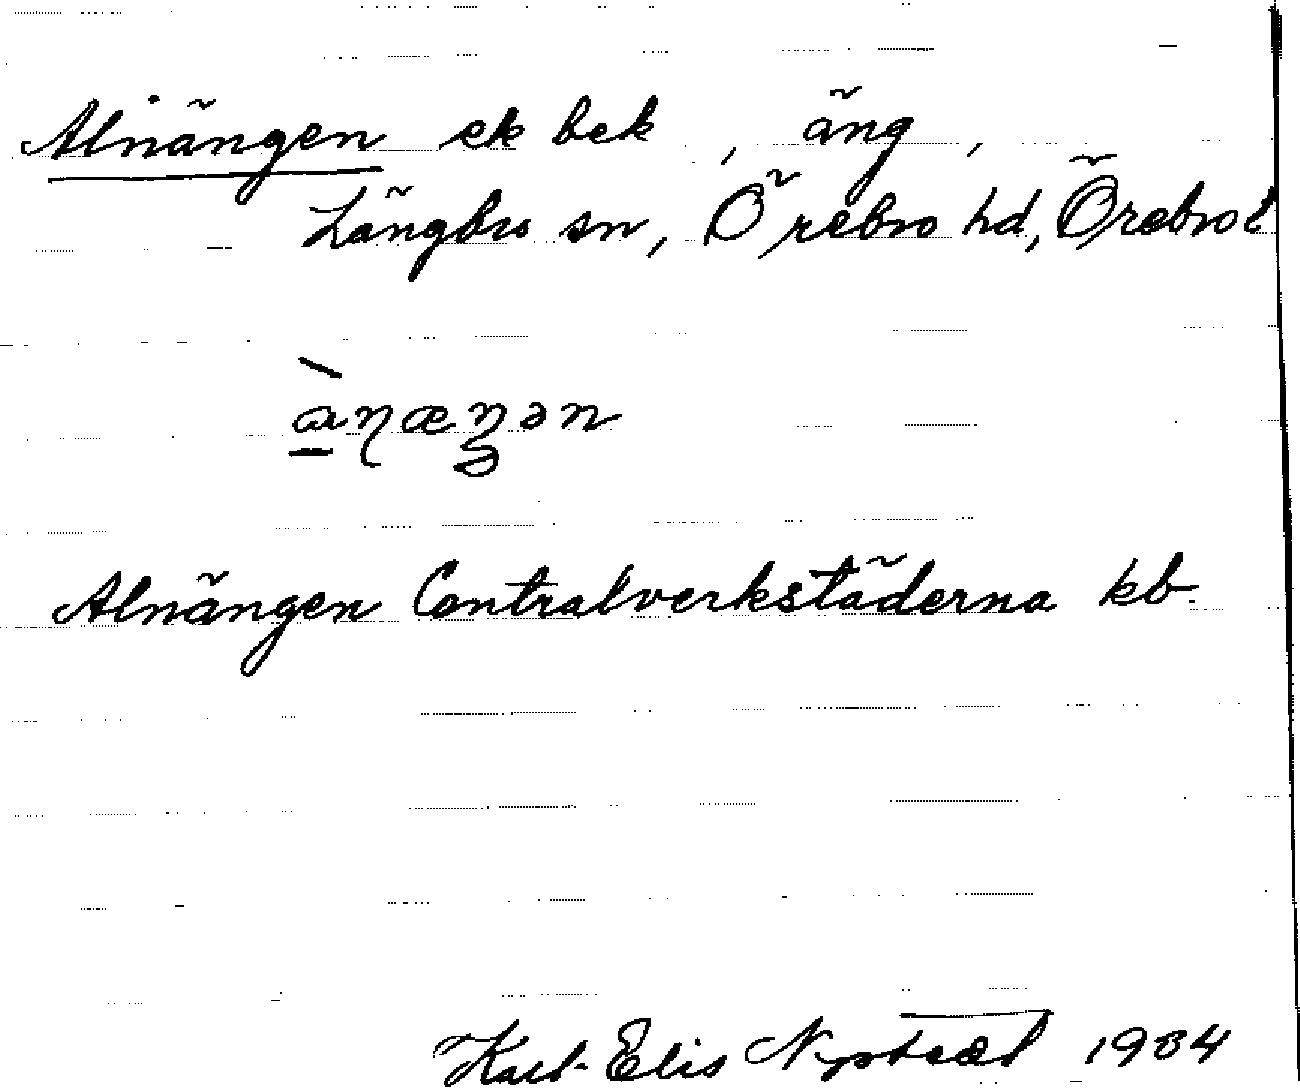 Alnängen ek bek, äng,
Längbro sn, Örebro hd, Örebro l
àɳæŋən
Alnängen Centralverkstäderna kb.
Karl-Elis 1934